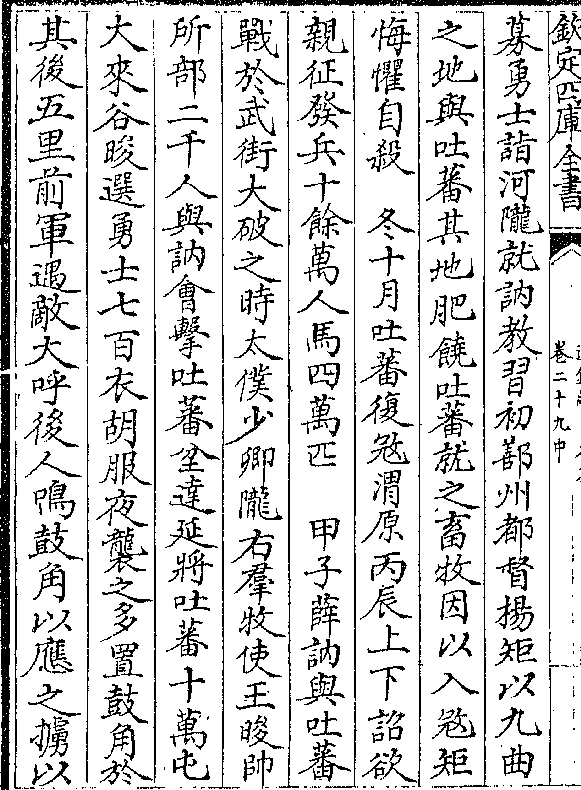 欽定四庫全書
卷二十九中
募勇士詣河隴就訥教習初鄯州都督楊矩以九曲
之地與吐蕃其地肥饒吐蕃就之畜牧因以入寇矩
悔懼自殺　冬十月吐蕃復寇渭原丙辰上下詔欲
親征發兵十餘萬人馬四萬匹　甲子薛訥與吐蕃
戰於武街大破之時太僕少卿隴右羣牧使王晙帥
所部二千人與訥會擊吐蕃坌達延將吐蕃十萬屯
大來谷晙選勇士七百衣胡服夜襲之多置鼓角於
其後五里前軍遇敵大呼後人鳴鼓角以應之擄以